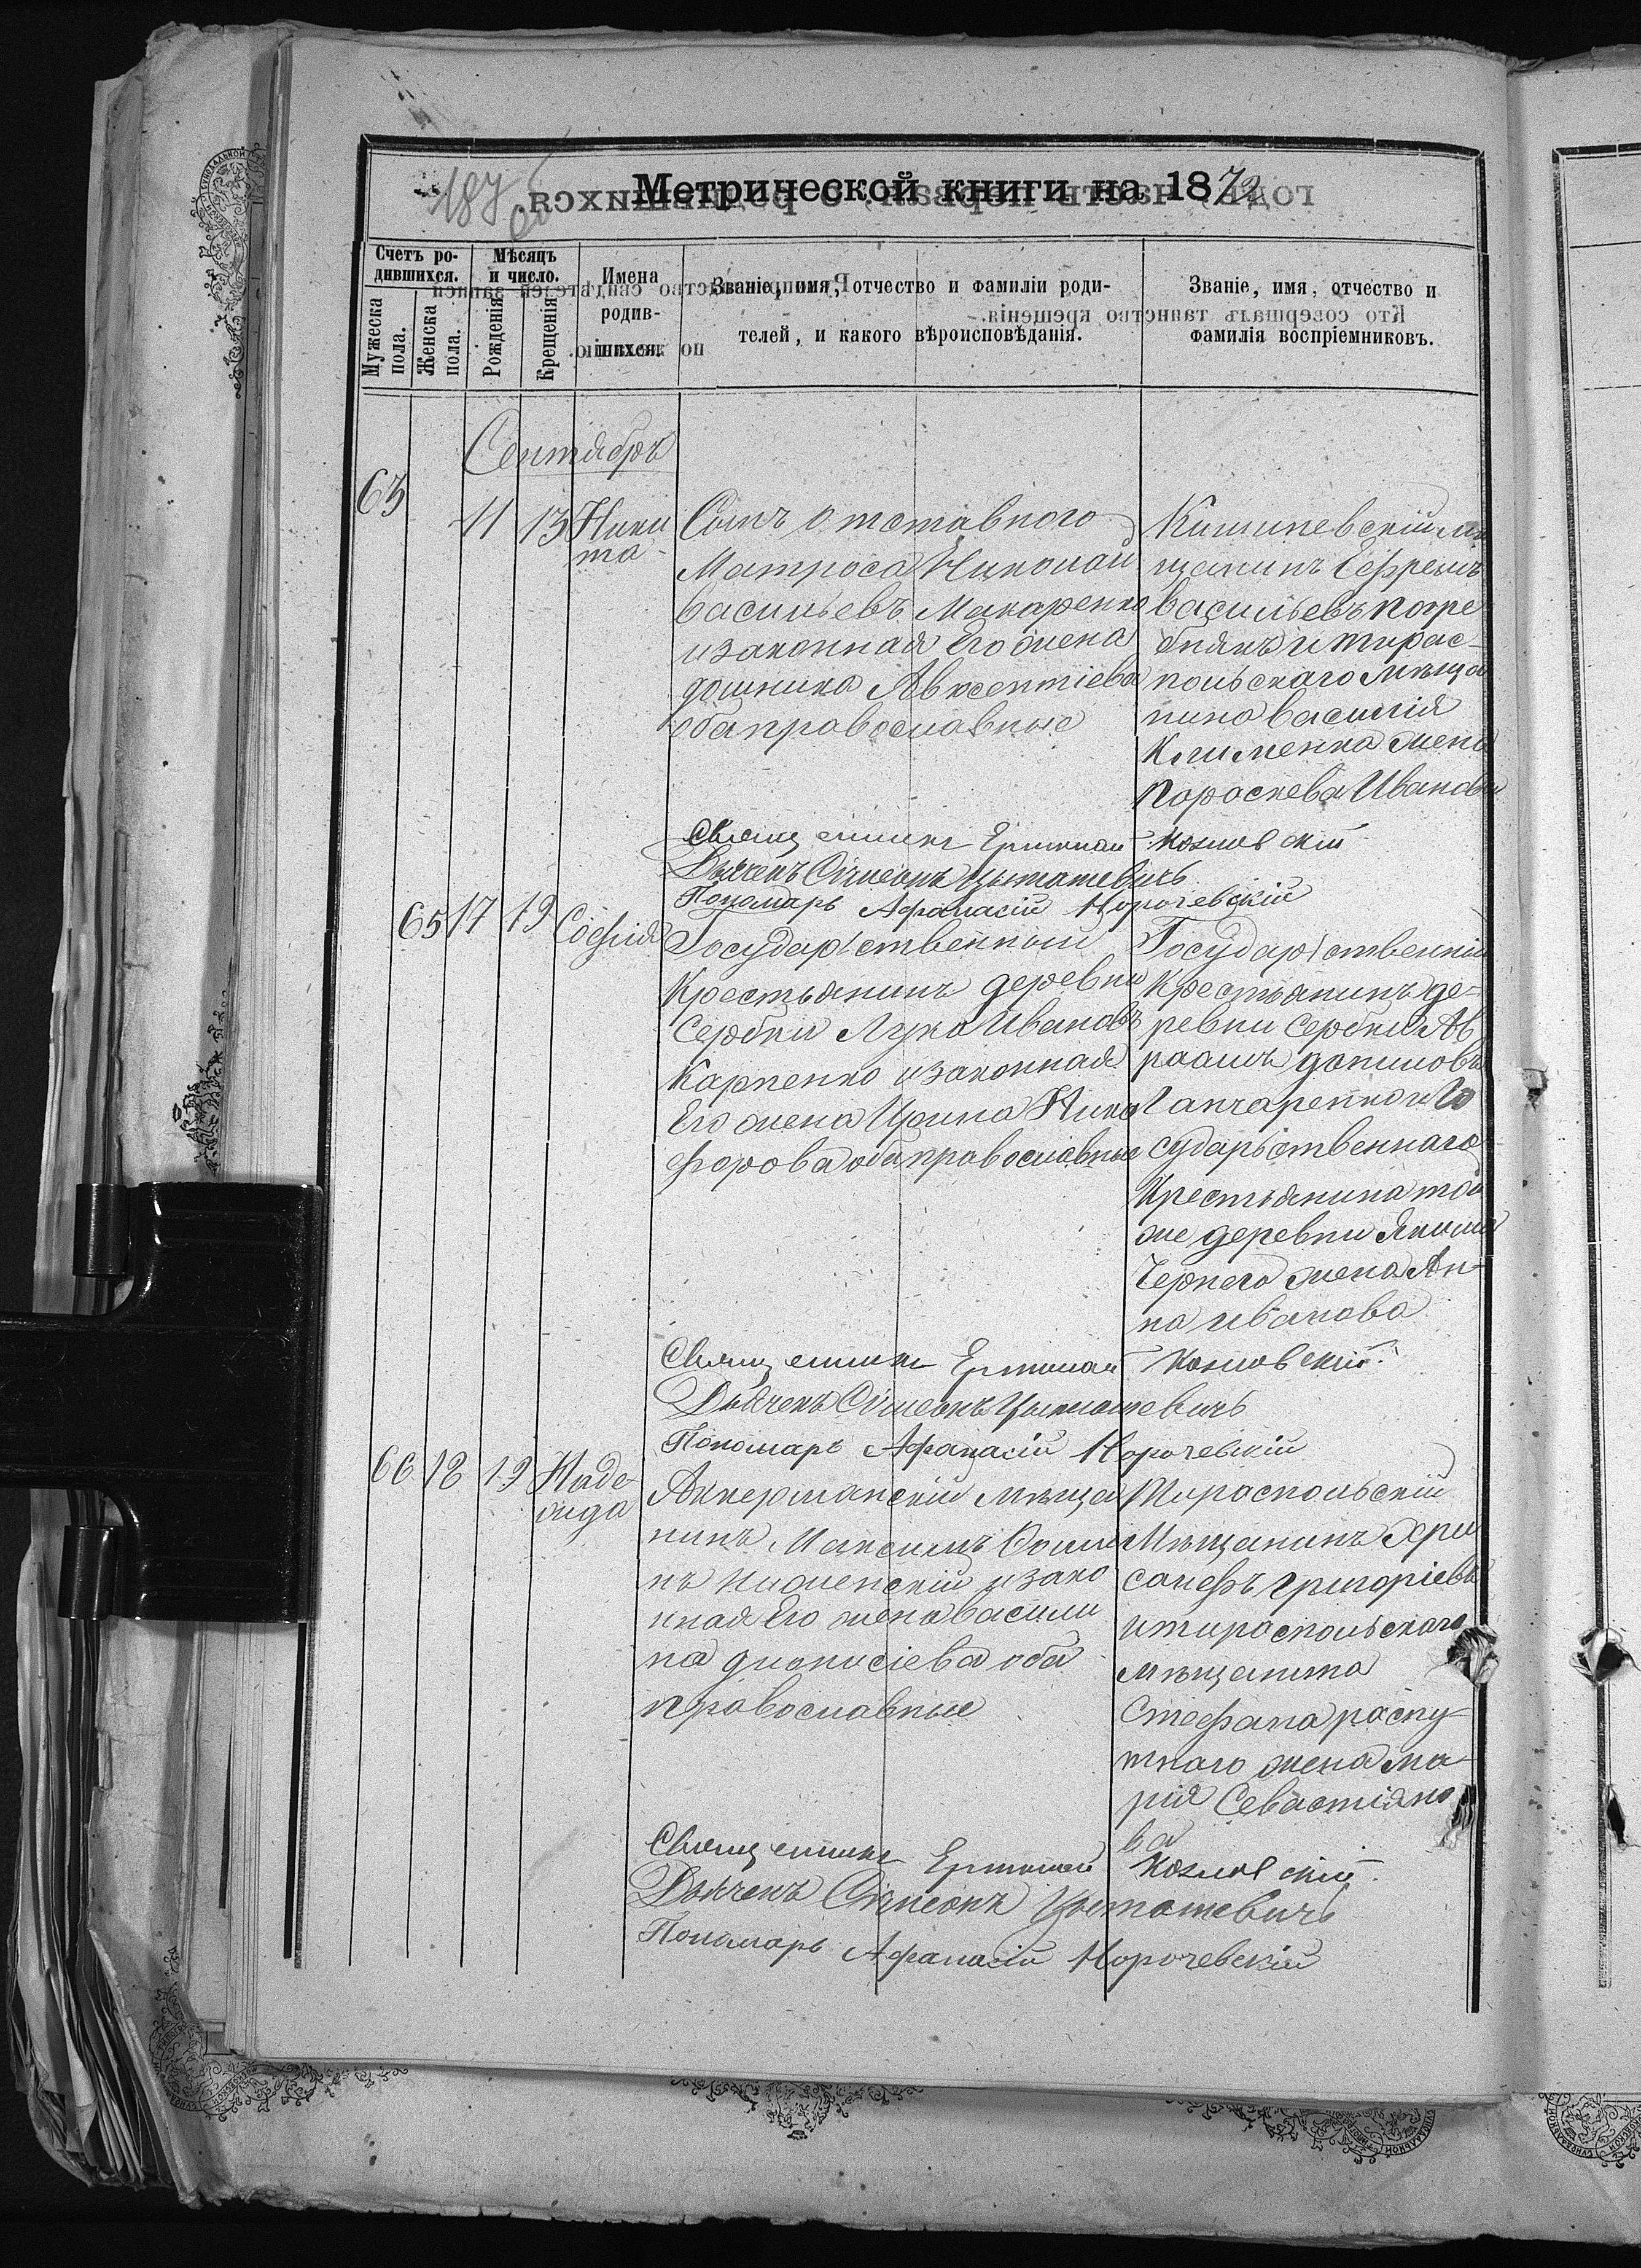 Метрической книги на 1872
Счетъ ро-
дившихся.
Мужеска
пола.
Женска
пола.
Мѣсяцъ
и число.
Рожденія
Крещенія
Имена
родив-
шихся.
Званіе, имя, отчество и фамиліи роди-
телей, и какого вѣроисповѣданія.
Званіе, имя, отчество и
фамилія воспріемниковъ.
Сентябрь
63
11
13
Ники
та
Сынъ отставного
Матроса Николай
васильевъ Макаренко
и законная Его жена
домника Авксентіева
оба православные
Кишиневскій мѣ
щанинъ Ефремъ
васильевъ погре
бнякъ и тирас-
польскаго мѣща
нина василія
Клименка жена
Пороскева Иванова
Священникъ Ермолай Козловскій
Дьячекъ Сімеонъ
Пономарь Афанасій Корочевскій
65
17
19
Софія
Государственный
Крестьянинъ деревни
Сербки Лука Ивановъ
Карпенко и законная
Его жена Ирина Ники
форова оба православные
Государственній
Крестьянинъ де-
ревни Сербки Ав
раамъ даниловъ
Ганчаренко и Го
сударственнаго
Крестьянина той
же деревни Якима
Чернего жена Ан-
на иванова
Священникъ Ермолай Козловскій.
Дьячекъ Сімеонъ
Пономарь Афанасій Корочевскій
66
18
19
Наде-
жда
Аккерманскій мѣща
нинъ Максимъ
и зако
нная Его жена васили
на дионисіева оба
православные
Тираспольскій
Мѣщанинъ Хри
санефъ григоріевъ
и тираспольскаго
мѣщанина
Стефана распу
тнаго жена ма-
рія Севастіяно
ва
Священникъ Ермолай Козловскій.
Дьячекъ Сімеонъ
Пономарь Афанасій Корочевскій